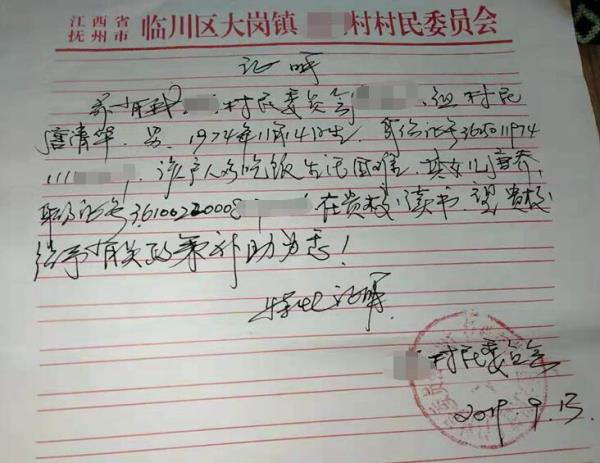 江西省抚州市 临川区大岗镇 村村民委员会
证明
村民委员会 组村民
唐清华、男、1974年11月14日生、身份证号365011974
1111 ,该户人多吃饭生活困难.其女儿唐
身份证号3610022000 在贵校读书.望贵校
给予有关政策补助为盼!
特此证明
村民委员会
2019.9.15